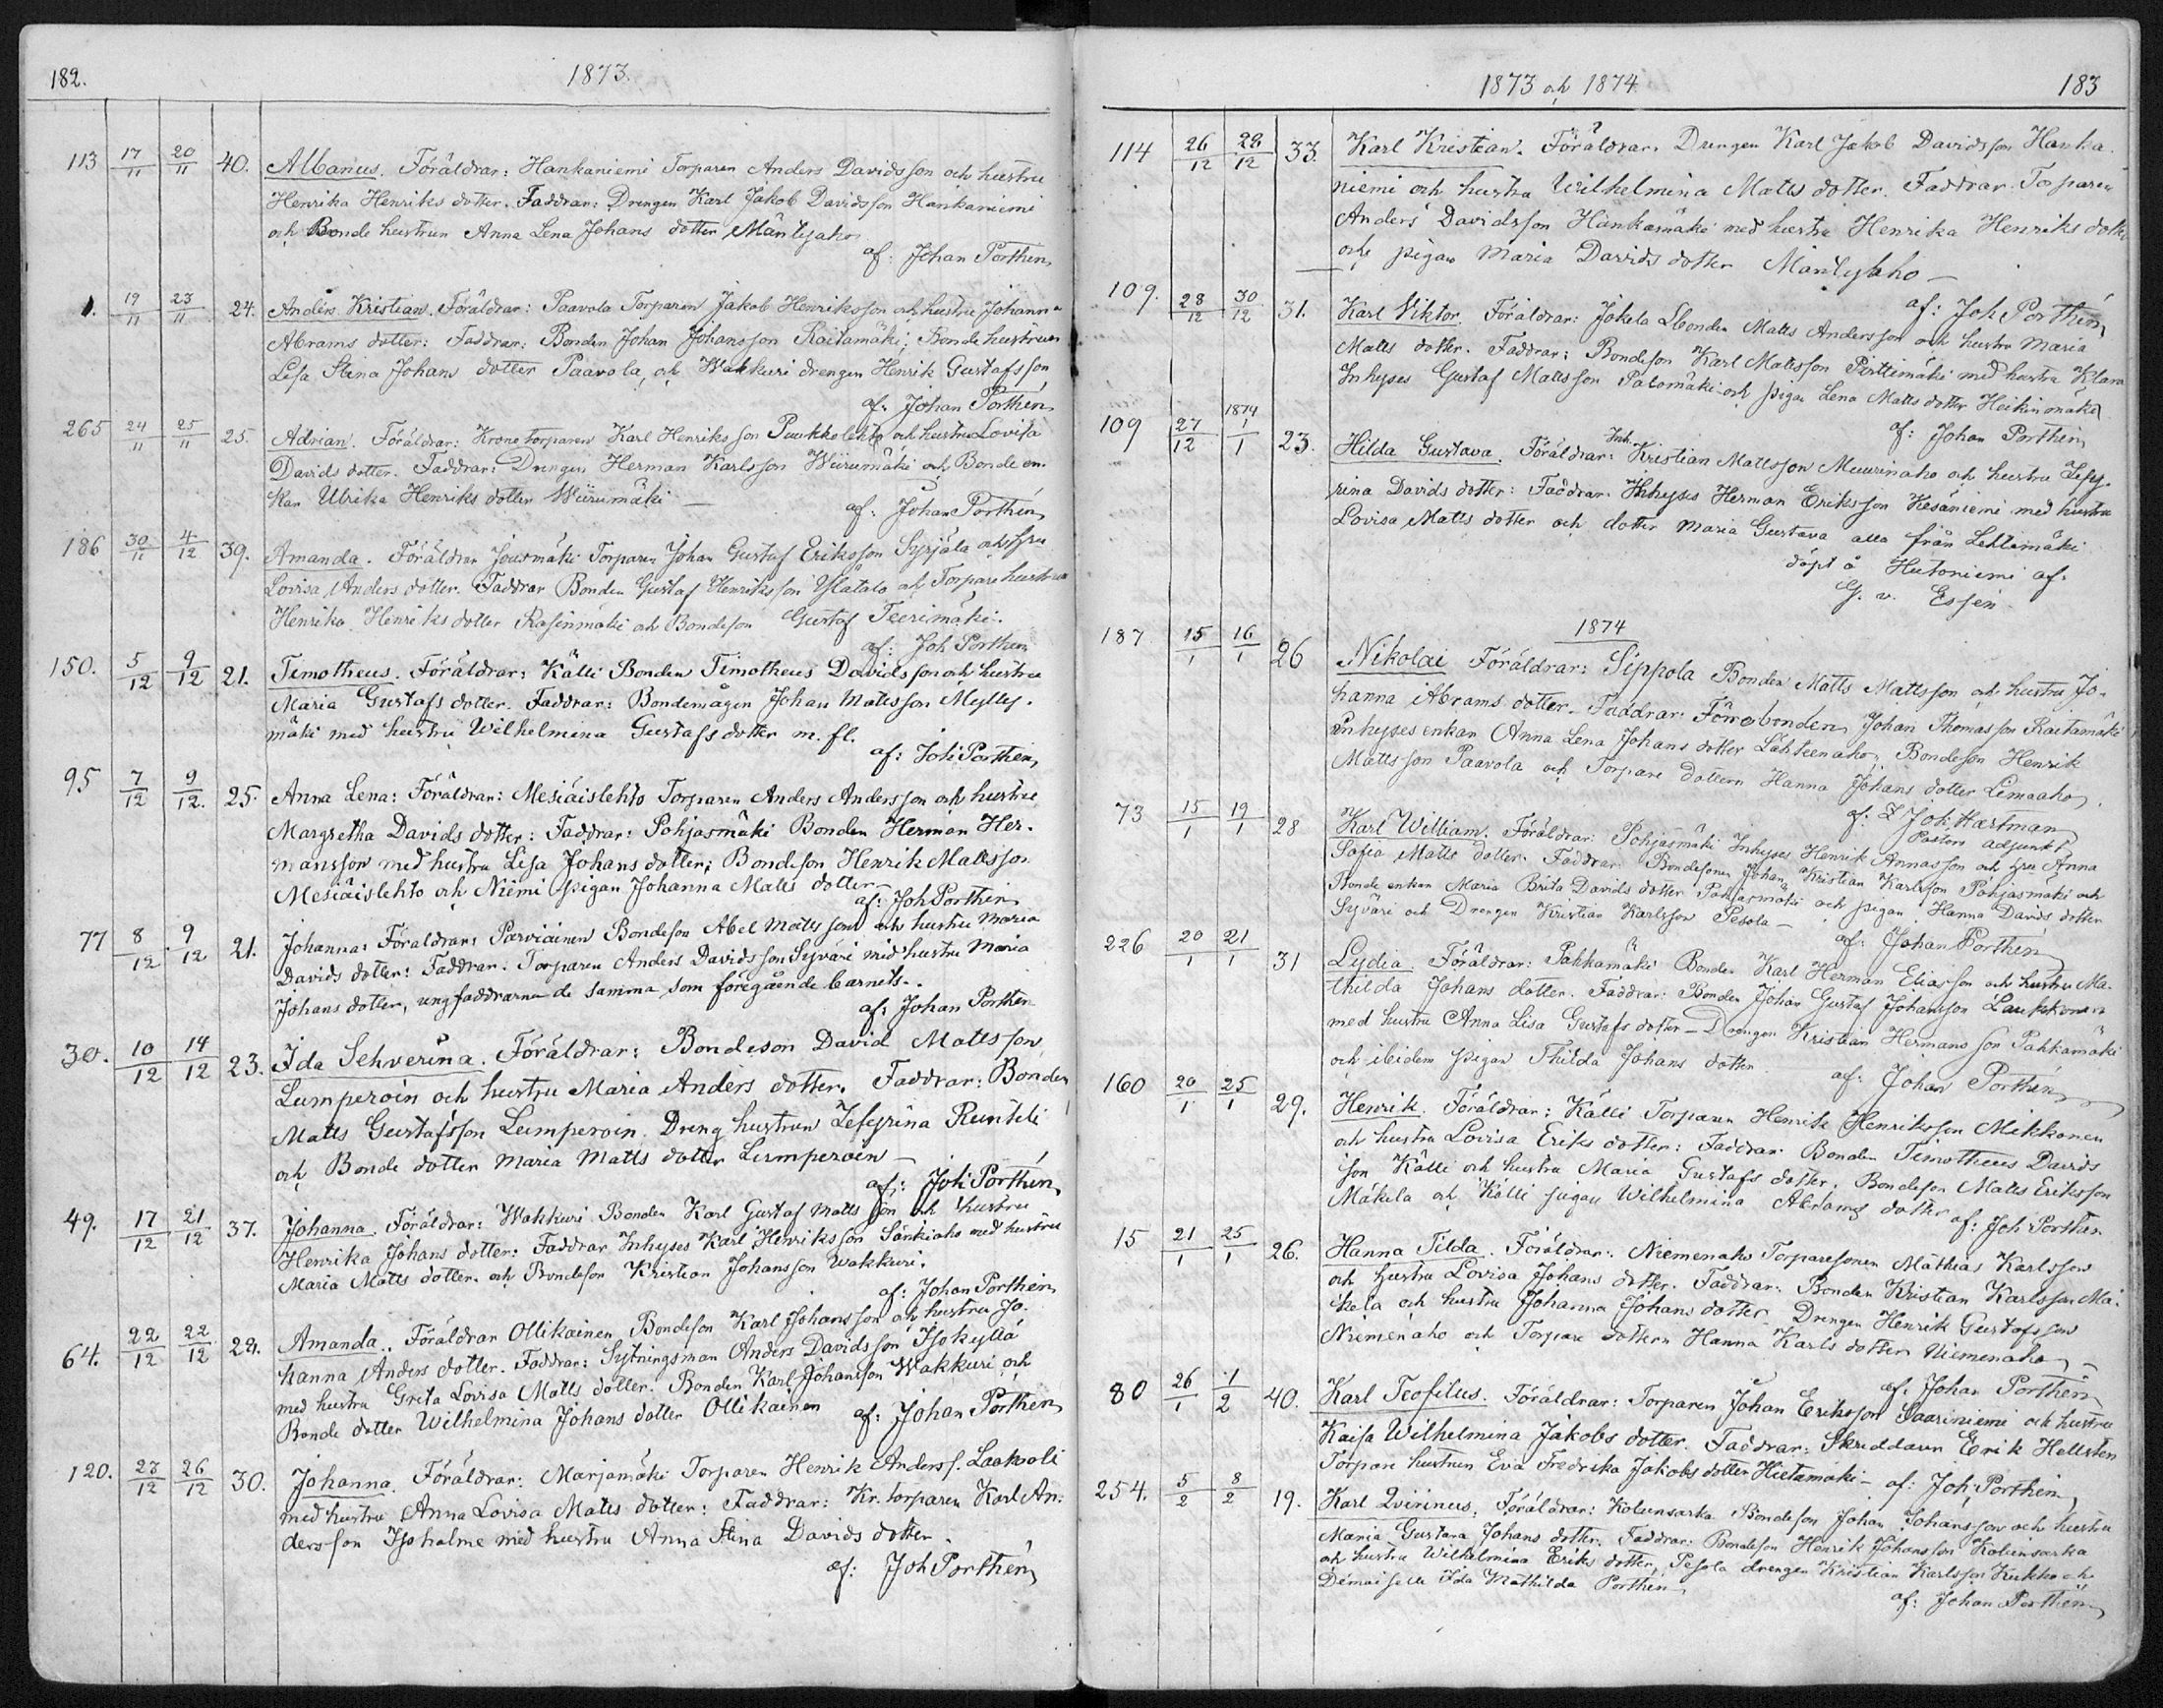 182.
1873.
113 17/11 20/11 40. Albanus. Föräldrar: Hankaniemi Torparen Anders Davidsson och hustru
Henrika Henriks dotter. Faddrar: Drengen Karl Jakob Davidsson Hankaniemi
och Bonde hustrun Anna Lena Johans dotter Mäntyaho
af: Johan Porthén
1. 19/11 23/11 24. Anders Kristian. Föräldrar: Paavola Torparen Jakob Henriksson och hustru Johanna
Abrams dotter: Faddrar: Bonden Johan Johansson Raitamäki; Bonde hustrun
Lisa Stina Johans dotter Paavola, och Wakkuri drengen Henrik Gustafsson
af: Johan Porthén
265 24/11 25/11 25. Adrian. Föräldrar: Krono torparen Karl Henriksson Puukkolehto och hustru Lovisa
Davids dotter. Faddrar: Drengen Herman Karlsson Wiirumäki och Bonde en-
kan Ulrika Henriks dotter Wiirumäki —
af: Johan Porthén
186 30/11 4/12 39. Amanda. Föräldrar Jousmäki Torparen Johan Gustaf Eriksson Syrjälä och hru
Lovisa Anders dotter. Faddrar Bonden Gustaf Henriksson Ylätalo och Torpare hustrun
Henrika Henriks dotter Rosinmäki och Bondeson Gustaf Teerimäki.
af: Joh Porthen
150. 5/12 9/12 21. Timotheus. Föräldrar: Källi Bonden Timotheus Davidsson och hustru
Maria Gustafs dotter. Faddrar: Bondemågen Johan Mattsson Mylly-
mäki med hustru Wilhelmina Gustafs dotter m. fl.
af: Joh Porthén
95 7/12 9/12. 25. Anna Lena: Föräldrar: Mesiäislehto Torparen Anders Andersson och hustru
Margretha Davids dotter: Faddrar: Pohjasmäki Bonden Herman Her-
mansson med hustru Lisa Johans dotter; Bondeson Henrik Mattsson
Mesiäislehto och Niemi pigan Johanna Matts dotter —
af: Joh Porthén
77 8/12 9/12 21. Johanna: Föräldrar: Parviainen Bondeson Abel Mattsson och hustru Maria
Davids dotter: Faddrar: Torparen Anders Davidsson Syväri med hustru Maria
Johans dotter, ungfaddrarna de samma som föregående barnets.
af: Johan Porthen
30. 10/12 14/12 23. Ida Sehverina. Föräldrar: Bondeson David Mattsson
Lumperoin och hustru Maria Anders dotter. Faddrar: Bonden
Matts Gustafsson Lumperoin. Dreng hustrun Zefyrina Runteli
och Bonde dotter Maria Matts dotter Lumperoin —
af: Joh Porthén
49. 17/12 21/12 37. Johanna. Föräldrar: Wakkuri Bonden Karl Gustaf Mattsson och hustru
Henrika Johans dotter: Faddrar Inhyses Karl Henriksson Sänkiaho med hustru
Maria Matts dotter och Bondeson Kristian Johansson Wakkuri.
af: Johan Porthén
64. 22/12 22/12 29. Amanda. Föräldrar Ollikainen Bondeson Karl Johansson och hustru Jo-
hanna Anders dotter. Faddrar: Sytningsman Anders Davidsson Isokylla
med hustru Greta Lovisa Matts dotter. Bonden Karl Johansson Wakkuri och
Bonde dotter Wilhelmina Johans dotter Ollikainen
af: Johan Porthén
120. 23/12 26/12 30. Johanna. Föräldrar: Marjamäki Torparen Henrik Anderss. Laakoli
med hustru Anna Lovisa Matts dotter: Faddrar: Kr. torparen Karl An-
dersson Isoholme med hustru Anna Stina Davids dotter.
af: Joh Porthén
1873 och 1874
183
114 26/12 28/12 33. Karl Kristian. Föräldrar. Drengen Karl Jakob Davidsson Hanka-
niemi och hustru Wilhelmina Matts dotter. Faddrar. Torparen
Anders Davidsson Hankamäki med hustru Henrika Henriks dotter
och pigan Maria Davids dotter Mäntylaho —
af: Joh Porthén
109. 28/12 30/12 31. Karl Viktor. Föräldrar: Jokela Bonden Matts Andersson och hustru Maria
Matts dotter. Faddrar: Bondeson Karl Mattsson Pirttimäki med hustru Klara
Inhyses Gustaf Mattsson Palomäki och pigan Lena Matts dotter Heikinmäki
af: Johan Porthén
109 27/12 1874 1/1 23. Hilda Gustava. Föräldrar: Inh. Kristian Mattsson Muurinaho och hustru Zefy-
rina Davids dotter: Faddrar. Inhyses Herman Eriksson Kesäniemi med hustru
Lovisa Matts dotter och dotter Maria Gustava alla från Lehtimäki
döpt å Hutoniemi af:
G. v. Essen
1874
187 15/1 16/1 26 Nikolai Föräldrar: Sippola Bonden Matts Mattsson och hustru Jo-
hanna Abrams dotter. Faddrar: Förrebonden Johan Thomasson Raitamäki
inhyses enkan Anna Lena Johans dotter Lähteenaho, Bondeson Henrik
Mattsson Paavola och Torpare dottern Hanna Johans dotter Lemaaho.
af: Joh Hartman
Pastors adjunkt
73 15/1 19/1 28 Karl William. Föräldrar: Pohjasmäki Inhyses Henrik Annasson och hru Anna
Sofia Matts dotter. Faddrar: Bondesonen Johan Kristian Karlsson Pohjasmäki och
Bonde enkan Maria Brita Davids dotter Pohjasmäki och pigan Hanna Davids dotter
Syväri och Drengen Kristian Karlsson Pesola —
af: Johan Porthén
226 20/1 21/1 31 Lydia. Föräldrar: Pahkamäki Bonden Karl Herman Eliasson och hustru Ma-
thilda Johans dotter. Faddrar: Bonden Johan Gustaf Johansson Laukkonen
med hustru Anna Lisa Gustafs dotter — Drengen Kristian Hermansson Pahkamäki
och ibidem pigan Thilda Johans dotter
af: Johan Porthén
160 20/1 25/1 29. Henrik. Föräldrar: Källi Torparen Henrik Henriksson Mikkonen
och hustru Lovisa Eriks dotter: Faddrar. Bonden Timotheus Davids
son Källi och hustru Maria Gustafs dotter. Bondeson Matts Eriksson
Mäkela och Källi pigan Wilhelmina Abrams dotter
af: Joh Porthen
15 21/1 25/1 26. Hanna Tilda. Föräldrar: Niemenaho Torparesonen Mathias Karlsson
och hustru Lovisa Johans dotter. Faddrar: Bonden Kristian Karlsson Mä-
kela och hustru Johanna Johans dotter Drengen Henrik Gustafsson
Niemenaho och Torpare dottern Hanna Karls dotter Niemenaho —
af: Johan Porthén
80 26/1 1/2 40. Karl Teofilus. Föräldrar: Torparen Johan Eriksson Saariniemi och hustru
Kaisa Wilhelmina Jakobs dotter. Faddrar: Skreddaren Erik Hellsten
Torpare hustrun Eva Fredrika Jakobs dotter Hietamäki —
af: Joh Porthén
254. 5/2 8/2 19. Karl Qvirinus. Föräldrar: Kolunsarka Bondeson Johan Johansson och hustru
Maria Gustava Johans dotter. Faddrar: Bondeson Henrik Johansson Kolunsarka
och hustru Wilhelmina Eriks dotter, Pesola drengen Kristian Karlsson Kukko och
Demoiselle Ida Mathilda Porthen
af: Johan Porthén